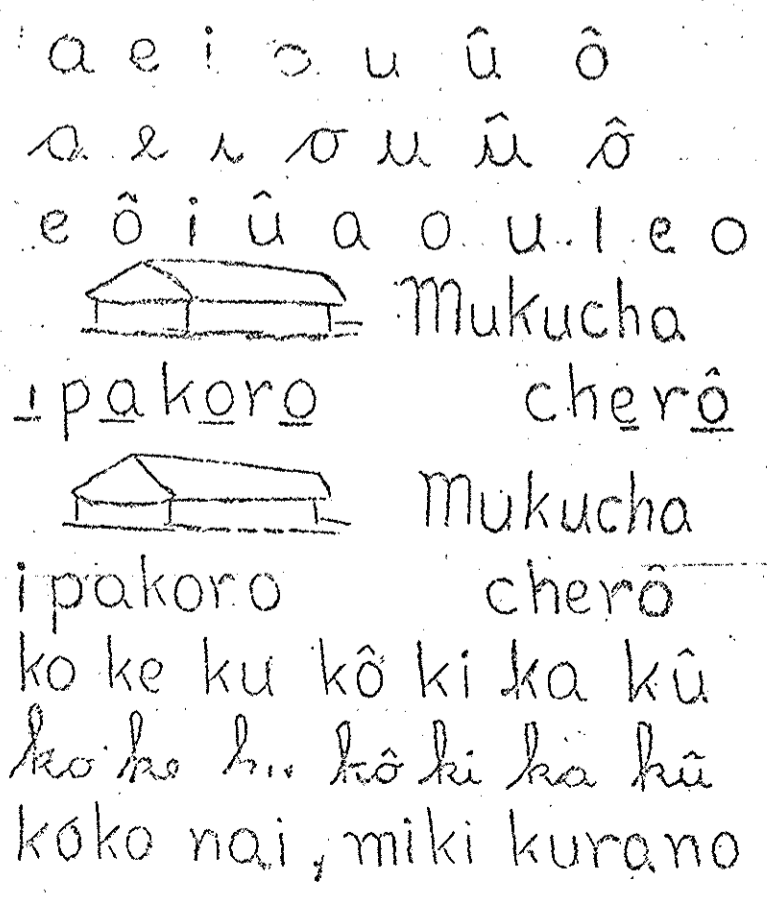 a e i o u û ô
a e i o u û ô
e ô i û a o u i e o
Mukucha
ipakoro cherô
Mukucha
ipakoro cherô
ko ke ku kô ki ka kû
ko ke ku kô ki ka kû
koko nai, miki kurano